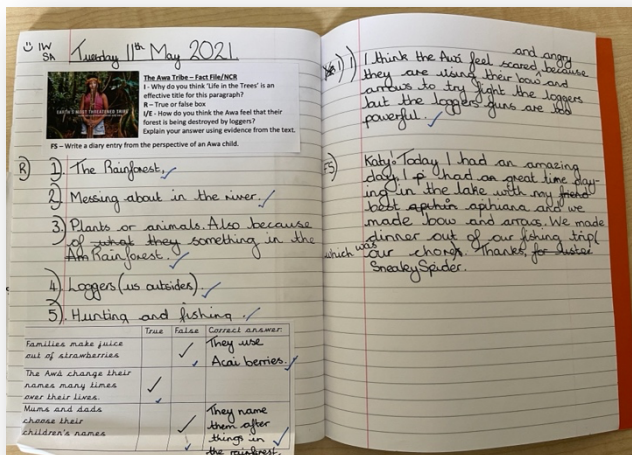 IW
SA
Tuesday 11th May 2021
The Awa Tribe – Fact File/NCR
I - Why do you think 'Life in the Trees' is an
effective title for this paragraph?
R – True or false box
I/E - How do you think the Awa feel that their
forest is being destroyed by loggers?
Explain your answer using evidence from the text.
EARTH'S MOST THREATENED TRIBE
FS – Write a diary entry from the perspective of an Awa child.
R) 1). The Rainforest.
2). Messing about in the river.
3). Plants or animals. Also because
of what they something in the
Am Rainforest.
4). Loggers (us outsides).
5). Hunting and fishing.
True False Correct answer:
Families make juice
out of strawberries
They use
Acai berries.
The Awá change their
names many times
over their lives.
Mums and dads
choose their
children's names
They name
them after
things in
the rainforest.
1) I think the Awá feel scared and angry because
they are using their bow and
arrows to try fight the loggers
but the loggers guns are too
powerful.
FS) Katy: Today I had an amazing
day, I had an great time play-
ing in the lake with my friend
best aphin aphiana and we
made bow and arrows. We made
dinner out of our fishing trip(
which was our chores. Thanks, for
Sneaky Spider.